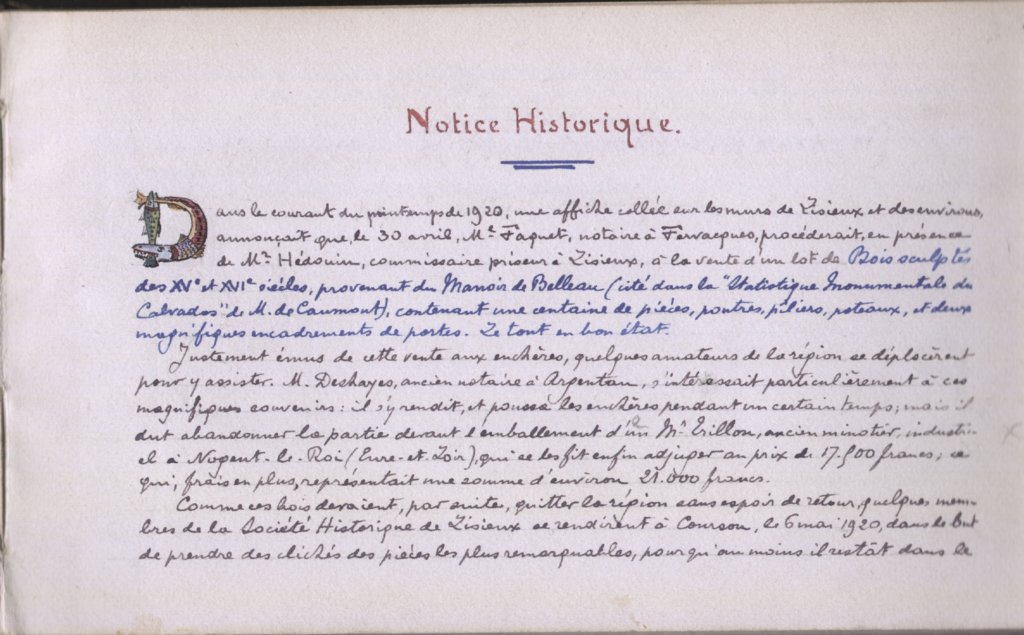 Notice Historique.
Dans le courant du printemps de 1920, une affiche collée sur les murs de Lisieux et des environs,
annonçait que, le 30 avril, Me Faguet, notaire à Fervacques, procéderait, en présence
de Mr Hédouin, commissaire priseur à Lisieux, à la vente d'un lot de Bois sculptés
des XVe et XVIe siècles, provenant du Manoir de Belleau (cité dans la "Statistique Monumentale du
Calvados" de M. de Caumont), contenant une centaine de pièces, poutres, piliers, poteaux, et deux
magnifiques encadrements de portes. Le tout en bon état.
Justement émus de cette vente aux enchères, quelques amateurs de la région se déplacèrent
pour y assister. M. Deshayes, ancien notaire à Argentan, s'intéressait particulièrement à ces
magnifiques souvenirs : il s'y rendit, et poussa les enchères pendant un certain temps ; mais il
dut abandonner la partie devant l'emballement d'un Mr Trillon, ancien minotier, industri-
el à Nogent-le-Roi (Eure-et-Loir), qui se les fit enfin adjuger au prix de 17.500 francs ; ce
qui, frais en plus, représentait une somme d'environ 21.000 francs.
Comme ces bois devaient, par suite, quitter la région sans espoir de retour, quelques mem-
bres de la Société Historique de Lisieux se rendirent à Courson, le 6 mai 1920, dans le but
de prendre des clichés des pièces les plus remarquables, pour qu'au moins il restât dans le